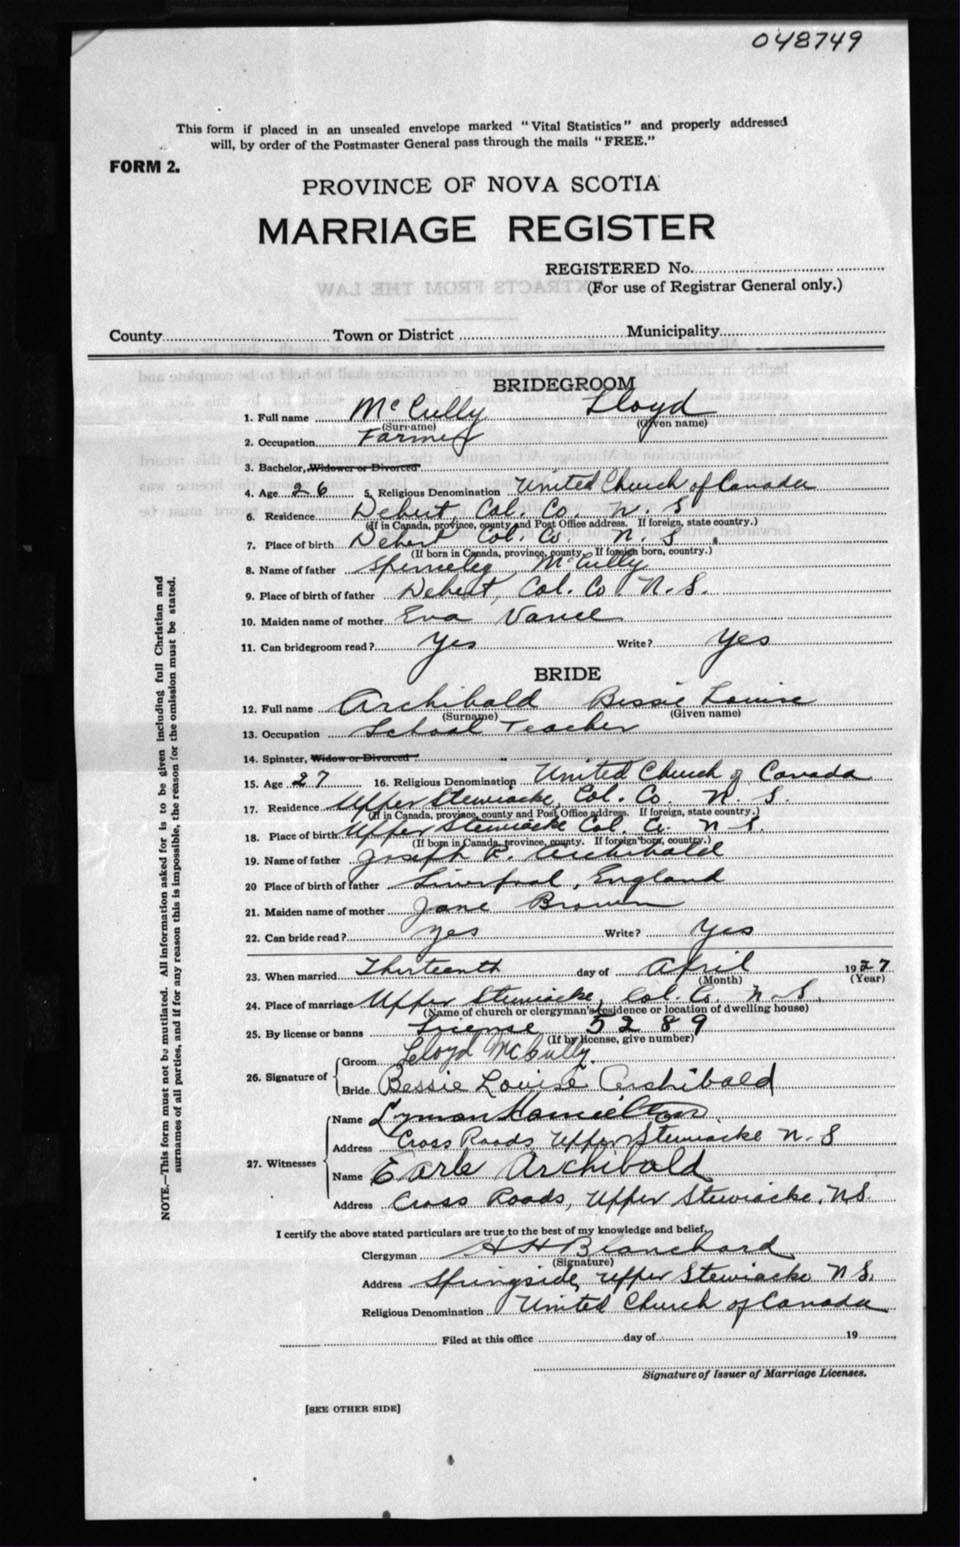 048749
This form if placed in an unsealed envelope marked "Vital Statistics" and properly addressed
will, by order of the Postmaster General pass through the mails "FREE."
FORM 2.
PROVINCE OF NOVA SCOTIA
MARRIAGE REGISTER
REGISTERED No.
(For use of Registrar General only.)
EXTRACTS FROM THE LAW
County Town or District Municipality
BRIDEGROOM
1. Full name McCully Lloyd
(Surname) (Given name)
2. Occupation Farmer
3. Bachelor, Widower or Divorced
4. Age 26 5. Religious Denomination United Church of Canada
6. Residence Debert, Col. Co. N. S
(If in Canada, province, county and Post Office address. If foreign, state country.)
7. Place of birth Debert Col. Co. N. S
(If born in Canada, province, county. If foreign born, country.)
8. Name of father McCully
9. Place of birth of father Debert, Col. Co N. S.
10. Maiden name of mother Eva
11. Can bridegroom read? Yes Write? Yes
BRIDE
12. Full name Archibald Bessie Louise
(Surname) (Given name)
13. Occupation School Teacher
14. Spinster, Widow or Divorced
15. Age 27 16. Religious Denomination United Church of Canada
17. Residence Upper Stewiacke, Col. Co. N. S.
(If in Canada, province, county and Post Office address. If foreign, state country.)
18. Place of birth Upper Stewiacke Col. Co. N S.
(If born in Canada, province, county. If foreign born, country.)
19. Name of father Joseph R. Archibald
20 Place of birth of father Liverpool, England
21. Maiden name of mother Jane Brown
22. Can bride read? Yes Write? Yes
23. When married Thirteenth day of April 1927
(Month) (Year)
24. Place of marriage Upper Stewiacke, Col. Co. N. S.
(Name of church or clergyman's residence or location of dwelling house)
25. By license or banns License 5289
(If by license, give number)
26. Signature of Groom Lloyd McCully.
Bride Bessie Louise Archibald
27. Witnesses
Name Lyman Hamilton
Address Cross Roads Upper Stewiacke N. S
Name Earle Archibald
Address Cross Roads, Upper Stewiacke, N.S.
I certify the above stated particulars are true to the best of my knowledge and belief.
Clergyman A H Blanchard
(Signature)
Address Springside, Upper Stewiacke N S.
Religious Denomination United Church of Canada
Filed at this office day of 19
Signature of Issuer of Marriage Licenses.
[SEE OTHER SIDE]
NOTE.—This form must not be mutilated. All information asked for is to be given including full Christian and
surnames of all parties, and if for any reason this is impossible, the reason for the omission must be stated.